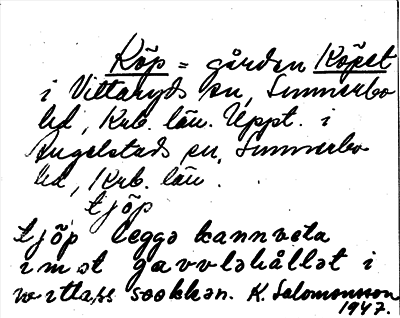 Köp = gården Köpet
i Vittaryds sn, Sunnerbo
hd, Krb. län. Uppt. i
Angelstads sn, Sunnerbo
hd, Krb. län.
tjöp
tjöp leggə kannveta
imot gavvləhållət i
wittass sookkən. K. Salomonsson
1947.